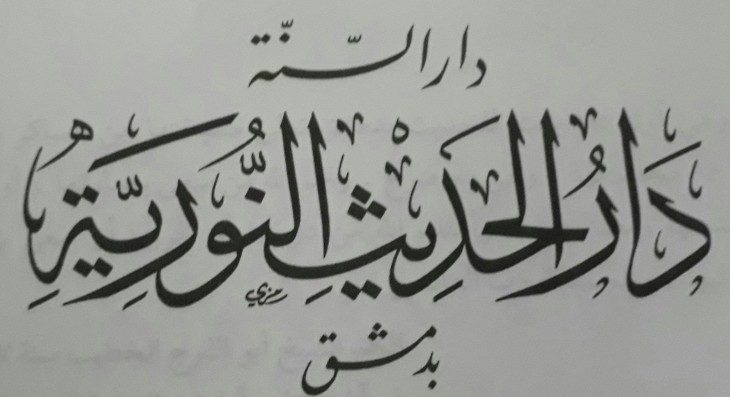 دار السنّة
دَارُ الحَدِيثِ النُّورِيَّةِ
بدمشق